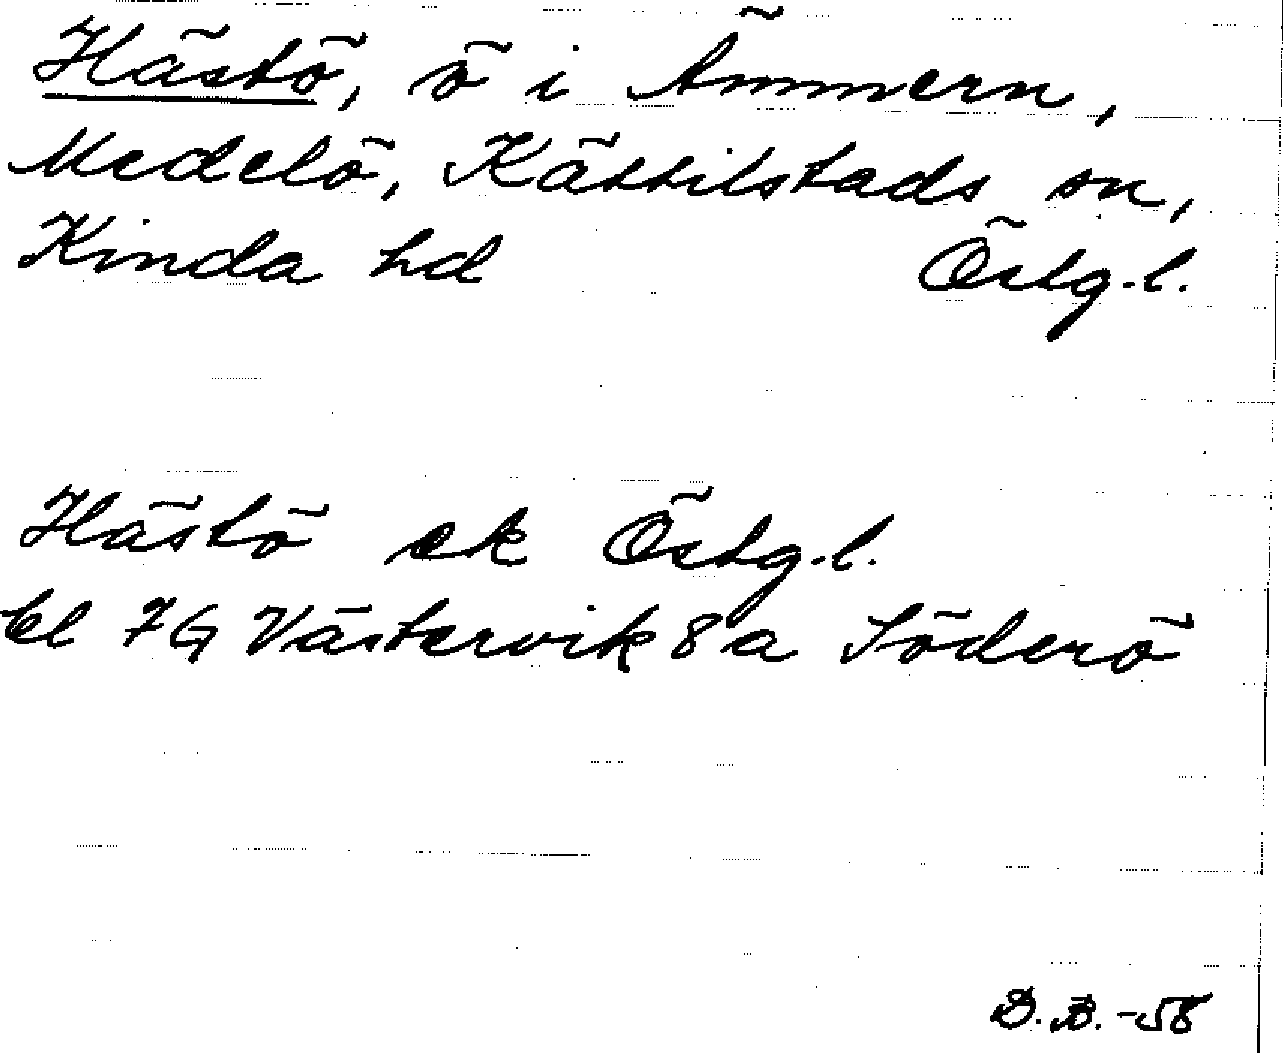 Hästö, ö i Ämmern,
Medelö, Kättilstads sn,
Kinda hd Östg.l.
Hästö ek Östg.l.
bl 7G Västervik 8a Söderö
B.B. -58